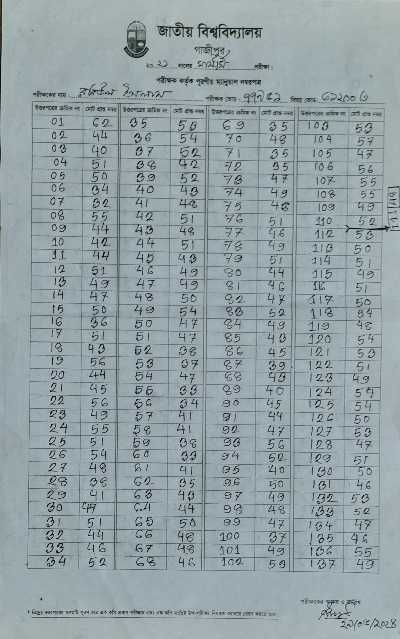 জাতীয় বিশ্ববিদ্যালয়
গাজীপুর
২০২১ সালের মাস্টার্স পরীক্ষা
পরীক্ষক কর্তৃক পূরণীয় ম্যানুয়াল নম্বরপত্র
পরীক্ষকের নাম ইসলাম পরীক্ষক কোড বিষয় কোড
উত্তরপত্রের ক্রমিক নং মোট প্রাপ্ত নম্বর উত্তরপত্রের ক্রমিক নং মোট প্রাপ্ত নম্বর উত্তরপত্রের ক্রমিক নং মোট প্রাপ্ত নম্বর উত্তরপত্রের ক্রমিক নং মোট প্রাপ্ত নম্বর
01 62 35 53 69 35 103 53
02 44 36 54 70 48 104 57
03 40 37 52 71 35 105 47
04 51 38 42 72 35 106 56
05 50 39 52 73 47 107 55
06 34 40 43 74 49 108 55
07 32 41 48 75 48 109 49
08 55 42 51 76 51 110 52
09 44 43 48 77 46 112 53
10 42 44 51 78 49 113 50
11 44 45 43 79 51 114 51
12 51 46 49 80 44 115 49
13 49 47 49 81 46 116 51
14 47 48 50 82 47 117 50
15 50 49 54 83 52 118 54
16 36 50 47 84 49 119 48
17 51 51 47 85 43 120 54
18 43 52 38 86 45 121 53
19 56 53 37 87 39 122 51
20 44 54 47 88 43 123 49
21 45 55 33 89 40 124 54
22 56 56 34 90 45 125 54
23 49 57 41 91 44 126 50
24 55 58 41 92 47 127 53
25 51 59 38 93 56 128 47
26 54 60 33 94 52 129 51
27 48 61 41 95 40 130 50
28 38 62 35 96 50 131 46
29 41 63 43 97 49 132 53
30 47 64 44 98 48 133 52
31 51 65 50 99 47 134 47
32 44 66 48 100 37 135 46
33 46 67 48 101 49 136 55
34 52 68 46 102 59 137 49
পরীক্ষকের স্বাক্ষর ও তারিখ